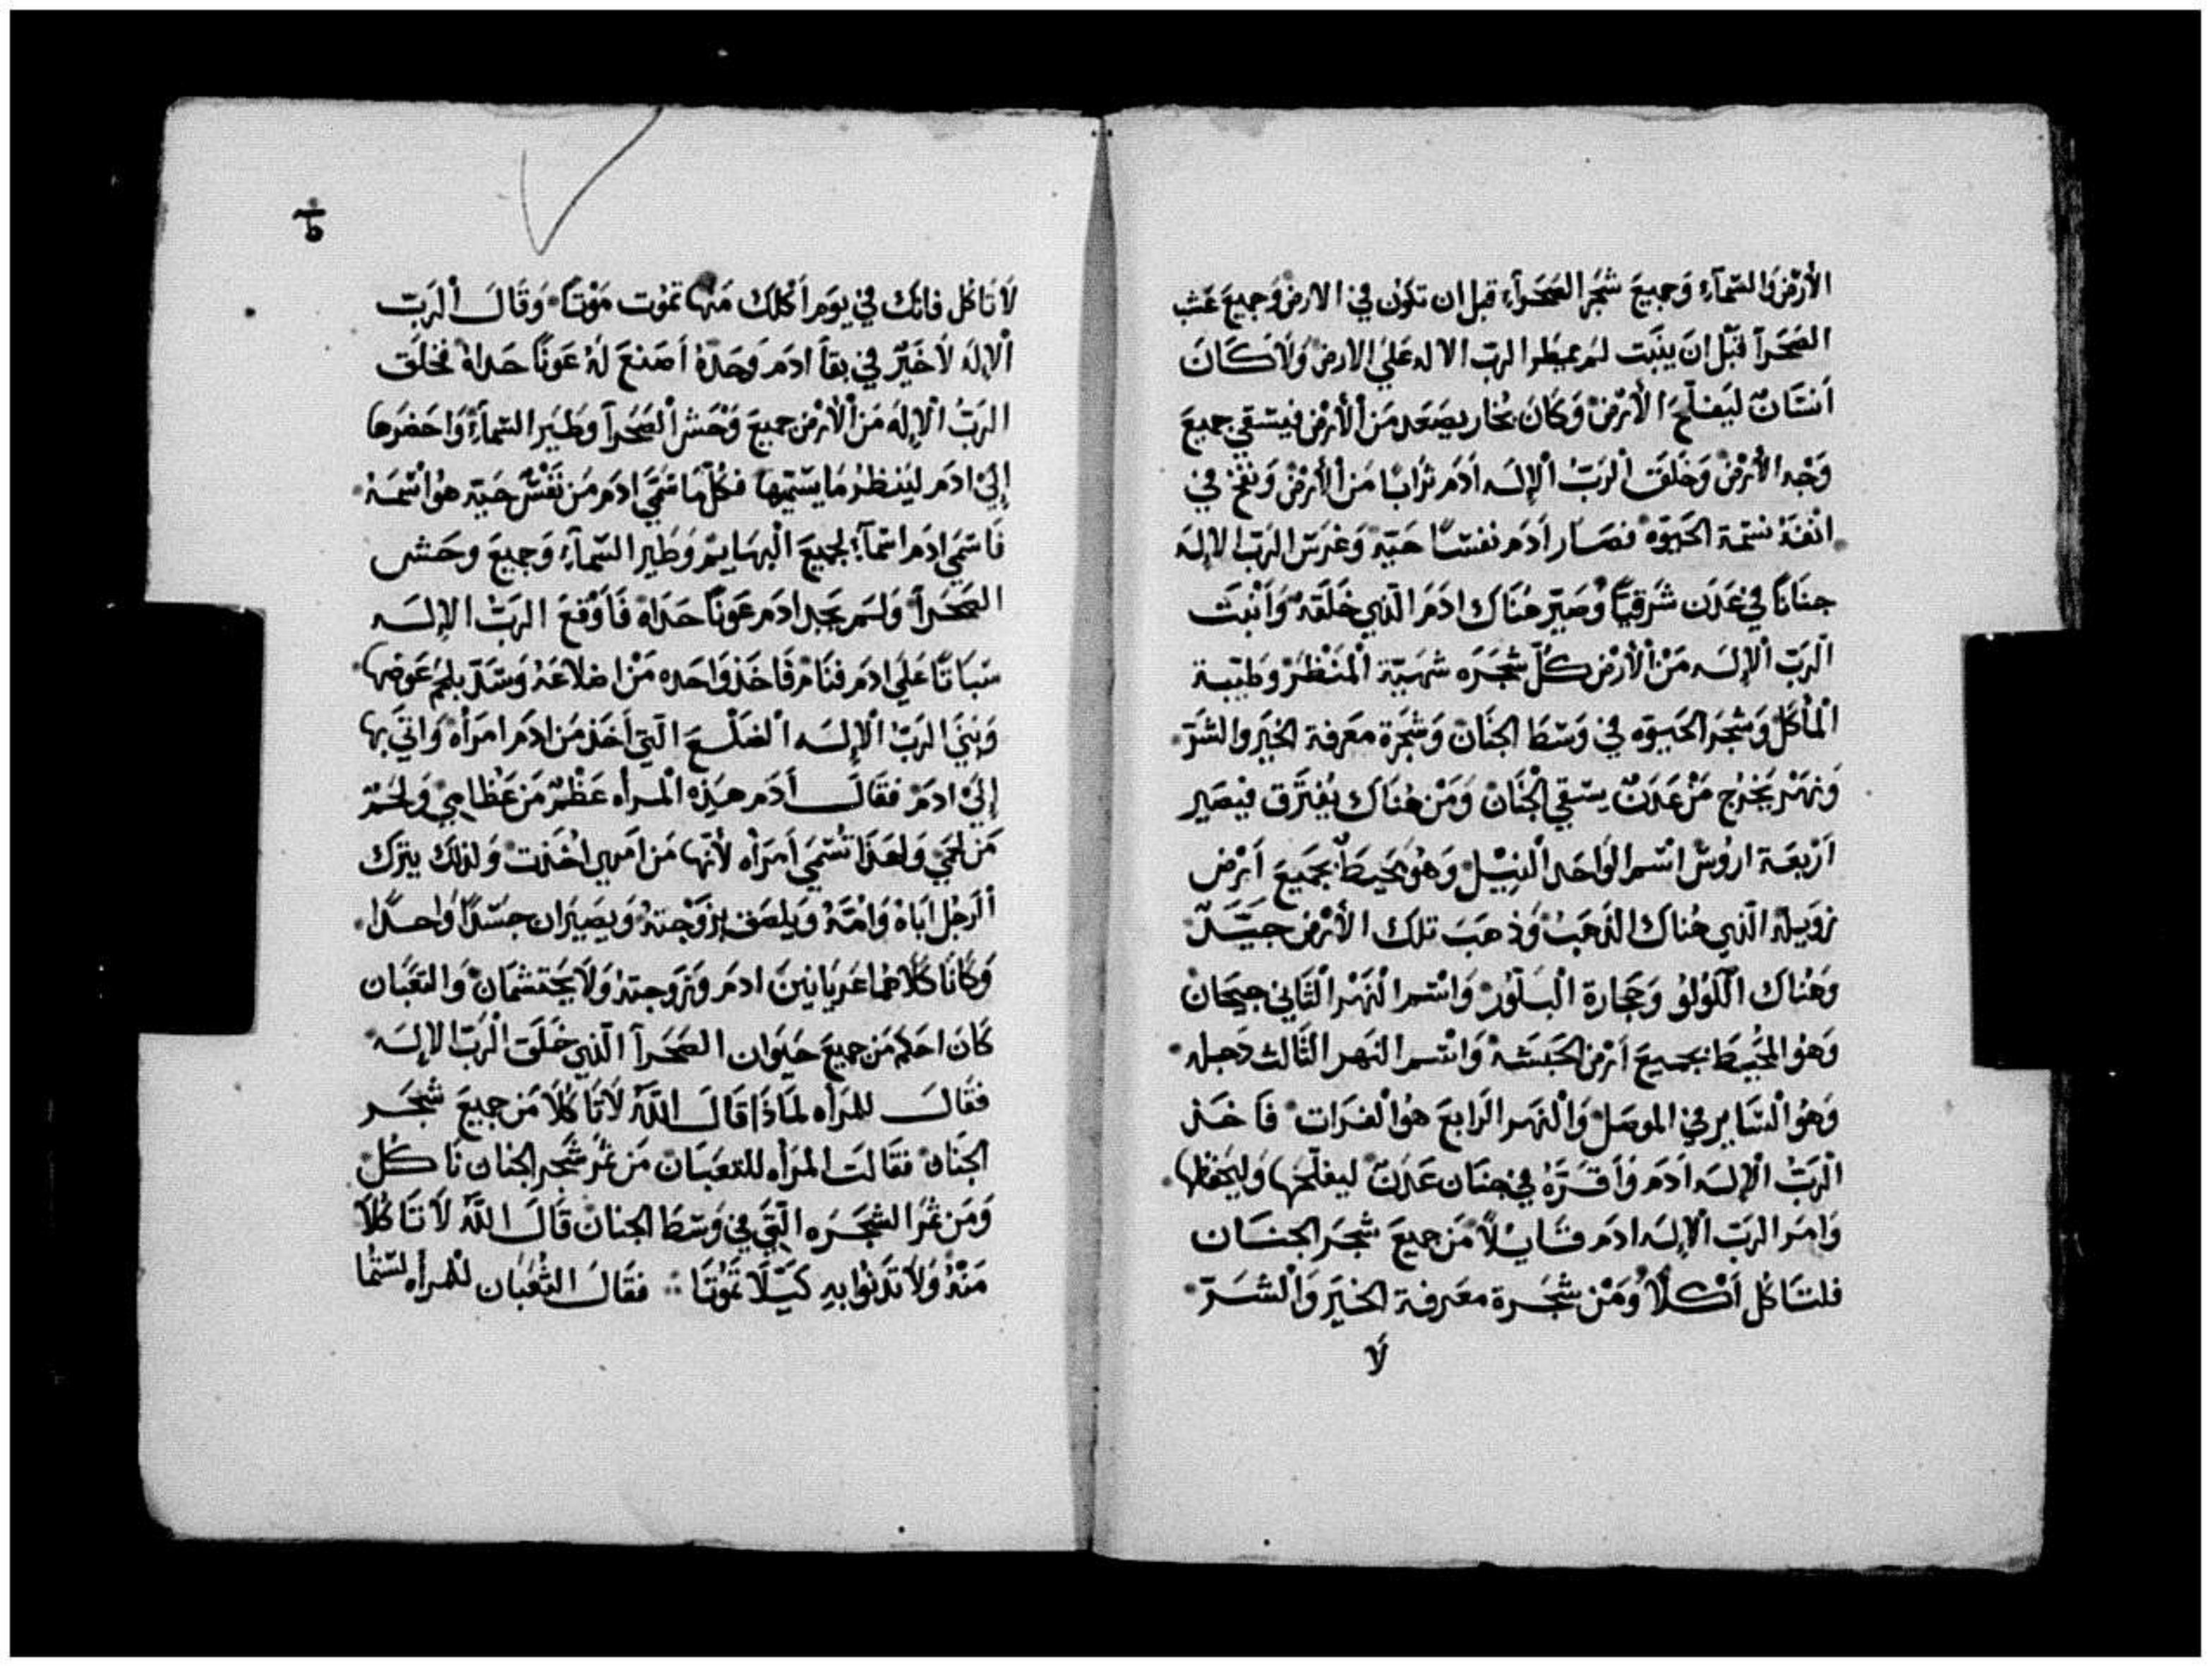 الأَرْض وَالسَّمآءِ وَجميعَ شجَر الصَحَرآءِ قبل ان تكوَن في الارض وَجميعَ عشب
الصَحَرآ قبْل انَ ينبَت لم يمطر الربّ الاله عَلي الارض وَلا كَانَ
انسَانٌ ليَفلَح الأرْض وَكانَ بُخار يصَعَد مَن الأرْض فيسْقي جميعَ
وَجْه الأرْض وَخَلَقَ الرَبّ الإلَه ادَم تُرَابًا مَن الأرْض وَنفخ في
انْفَهُ نسْمة الحَيَوة فصَار ادَم نفسًا حَيّه وَغرَسَ الرَبّ الاله
جنَانًا في عَدَن شرَقيًا وصَيّر هُنَاك ادَمَ الّذي خَلَقَهُ وَأنْبَتَ
الرَبّ الإلَه مَن الأرْض كلّ شجَرَه شهيَّة المَنْظَرْ وَطيّبة
المأكَل وَشجَر الحَيوَه في وَسْطَ الجنَانْ وَشجَرة مَعَرفة الخيَر والشرّ
وَنهَر يَخرُج مَنْ عَدَن يسْقي الجنَانْ وَمَنْ هُنَاك يُفتَرَق فيصَير
أرْبعَة اروُسْ اسْم الوَاحَد النيْل وَهُو محَيط بجَميعَ أرْض
زَوَيلة الّذي هُناك الذَهبْ وَذهبَ تلك الأرْض جيّدٌ
وَهُنَاك اللُولُو وَحجَارة البَلّور وَاسْم النَهْر الثاني جيحَانْ
وَهُو المحُيط بجميعَ أرْض الحَبَشة وَاسْم النهر الثالث دَجله
وَهُو السَاير في الموصَل وَالنهر الرَابعَ هُو الفرَات فأخذ
الرَبّ الإلَه ادَم وَأقرَّهُ في جنَان عَدَن ليفلَحَها وَليَحفظها
وَامَر الربّ الإلَه ادَم قايلاً مَن جميعَ شجَر الجنَان
فلتَاكُل أكلاً وَمَنْ شجَرة معَرفة الخيَر وَالشَرّ
لَا
لاَ تَاكُل فانك في يوَم أكلك مَنها تموُت مَوْتًا وَقَالَ الرَبّ
الإله لاَ خَيْرٌ في بقآ ادَم وَحَدَهُ أصَنعَ لَهُ عَونًا حَدَاهُ فخلَق
الرَبّ الإلَه مَن الأرْض جميعَ وَحْش الصَحَرآ وطَيَر السَمآءِ وَاحَضرَها
إلي ادَم ليَنظرُ مَا يسَمّيها فكلّما سَمّي ادَم مَن نَفْسٌ حَيّه هُو اسْمهُ
فَاسَمي ادَم اسْمآءً لجميعَ البهَايم وَطَير السَمآءِ وَجميعَ وحَش
الصَحَرآ وَلم يجَد ادَم عَونًا حَدَاهُ فَأوْقعَ الرَبّ الإلَه
سَبَاتًا عَلَي ادَم فنَامْ فَاخَذ وَاحَده مَنْ اضلاعَهُ وَسَدّ بلحم عَوضها
وَبنَي الرَبّ الإلَه الضلْعَ الّتي أخَذ مَن ادَم امَرأه وَاتي بها
إليَ ادَمْ فقَالَ أدَم هذِه المَرأه عَظمٌ مَن عَظامِي وَلحمٌ
مَن لحمَي وَلهَذَا تُسْمَي أمَرأه لأنها مَن اَمَري اخَذت وَلذلك يترَك
الرَجُل ابَاهُ وَامّهُ وَيلصَق بزَوْجتهُ وَيصَيَران جسَدًا وَاحدًا
وَكَانَا كَلاَهُما عَريَانينَ ادَم وَزَوجتهُ وَلاَ يحَتشمَانْ وَالثعَبَان
كَانَ احَكم مَن جميعَ حَيَوان الصَحَرآ الّذي خَلَقَ الرَبّ الإلَه
فقَالَ للمَرأه لمَاذَا قَالَ اللَّه لاَ تَاكُلاَ مَن جميعَ شجَر
الجنَان فقَالتَ المَرأه للثعَبَان مَن ثمُر شجَر الجنَان نَاكُلْ
وَمَن ثمُر الشجَرَه الّتي في وَسْطَ الجنانْ قَالَ اللَّه لاَ تَاكُلاَ
مَنهُ وَلاَ تَدَنُوا بهِ كَيْلاَ تمُوَتا فقَالَ الثُعبَان للمرأه لسْتُما